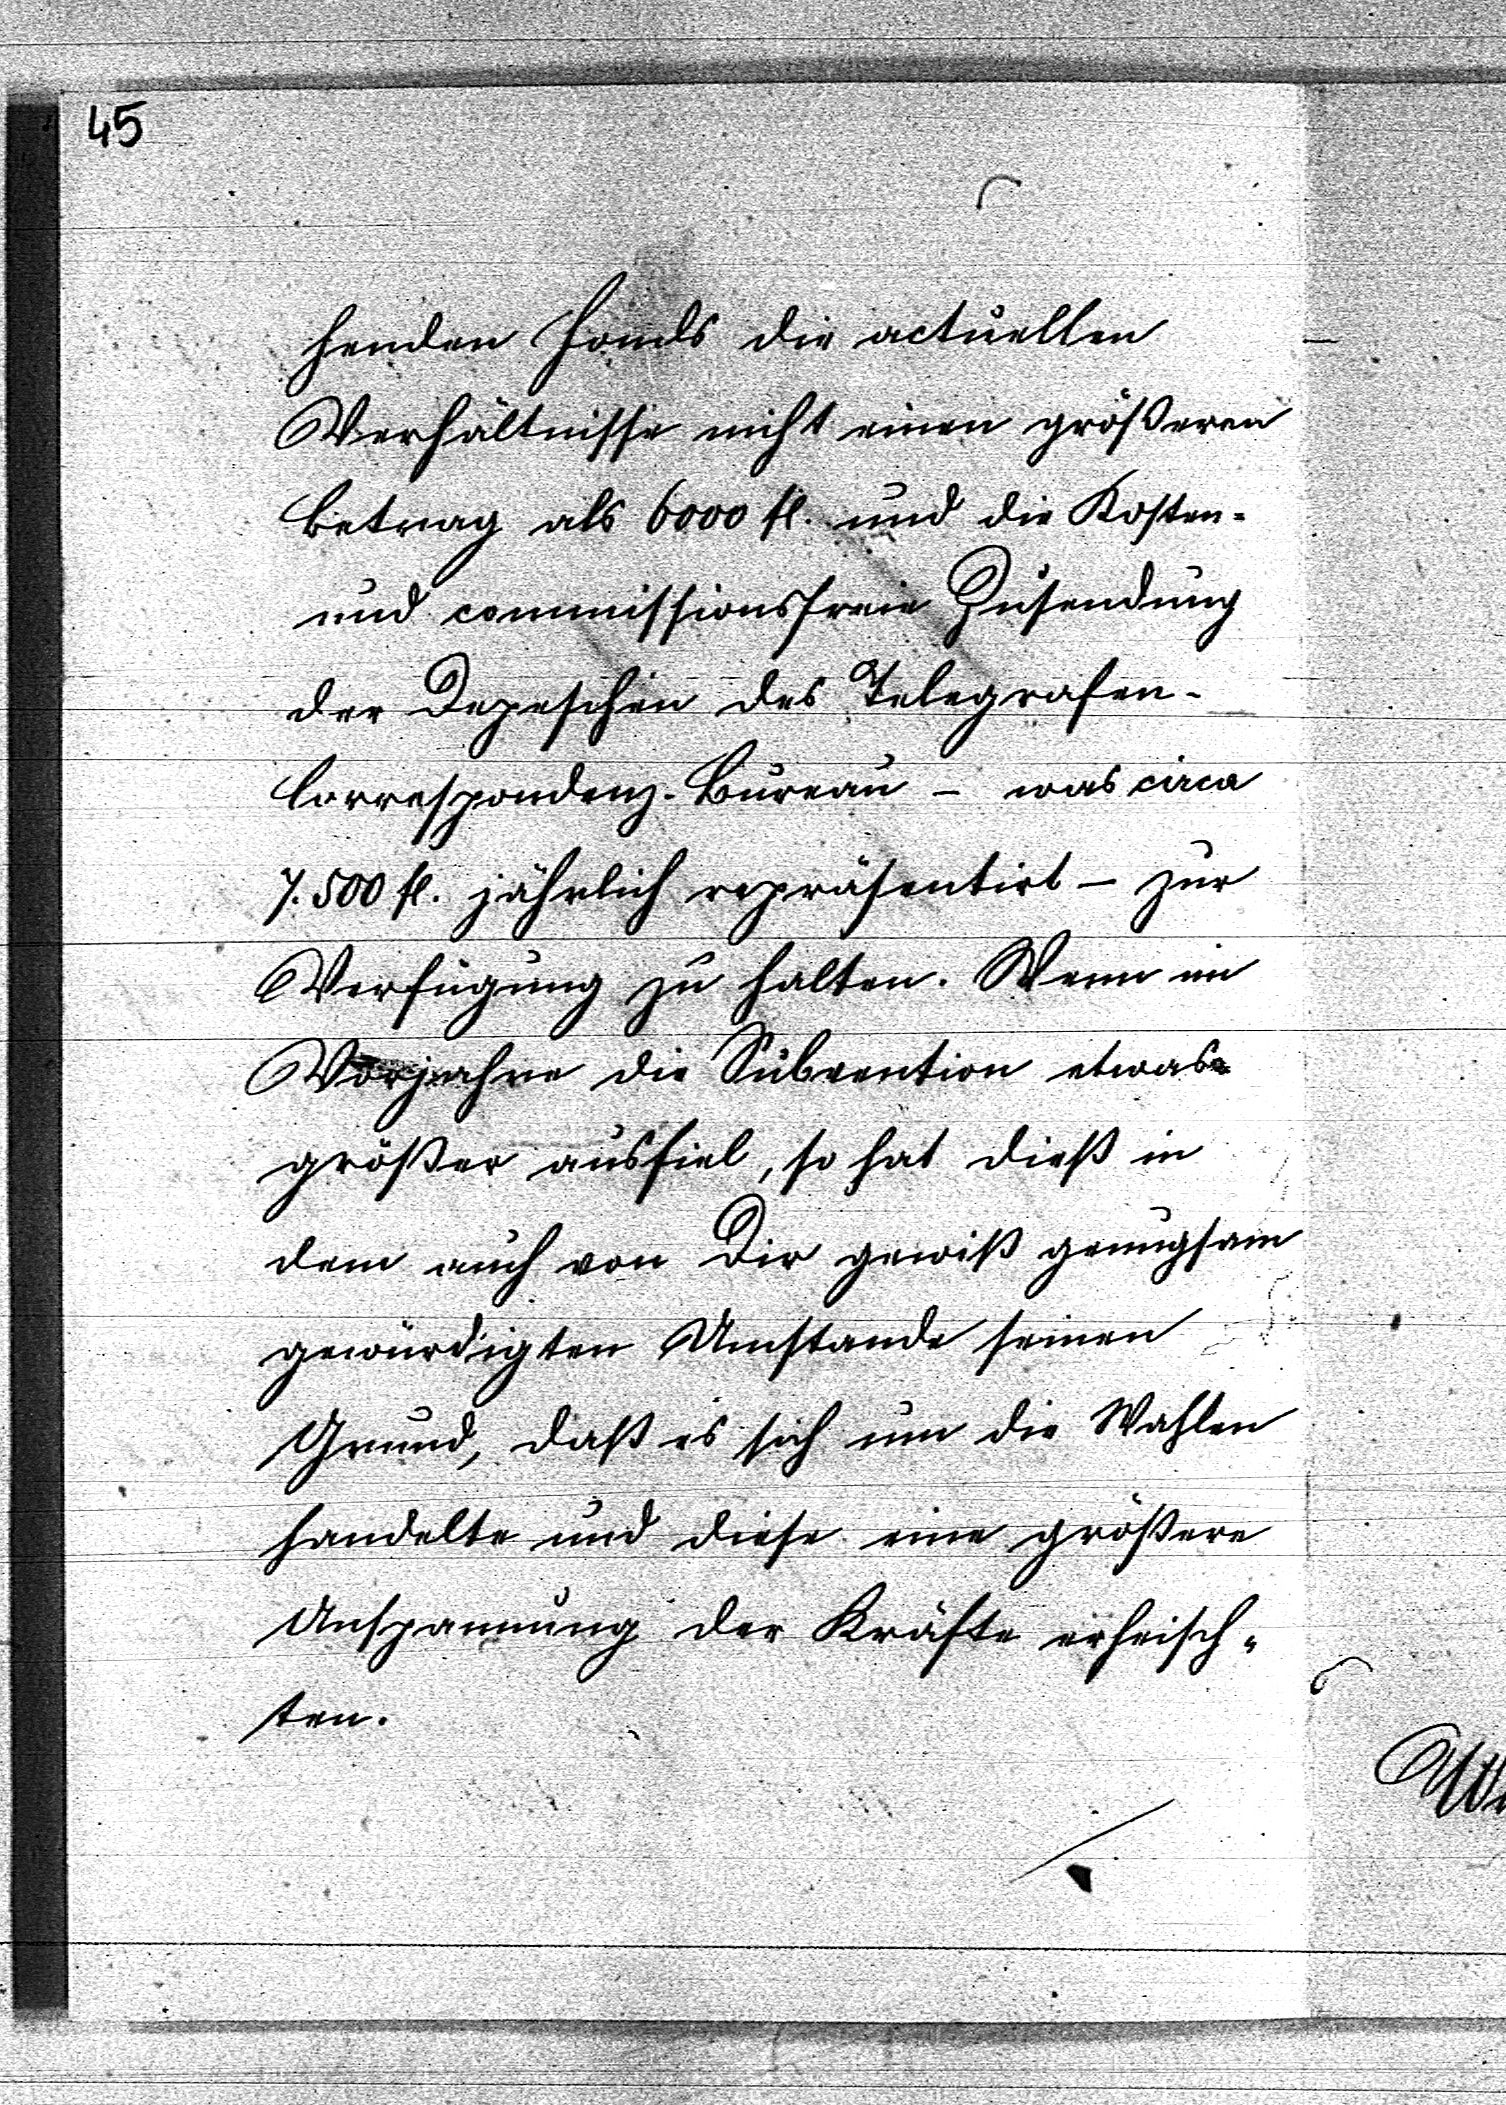 45
henden Fonds die actuellen
Verhältnisse nicht einen größeren
Betrag als 6000 fl. und die Kosten-
und commissionsfreie Zusendung
der Depeschen des Telegrafen-
Correspondenz-Bureau – was circa
7.500 fl. jährlich repräsentirt – zur
Verfügung zu halten. Wenn im
Vorjahre die Subvention etwas
größer ausfiel, so hat dieß in
dem auch von Dir gewiß genugsam
gewürdigten Umstande seinen
Grund, daß es sich um die Wahlen
handelte und diese eine größere
Anspannung der Kräfte erheisch-
ten.